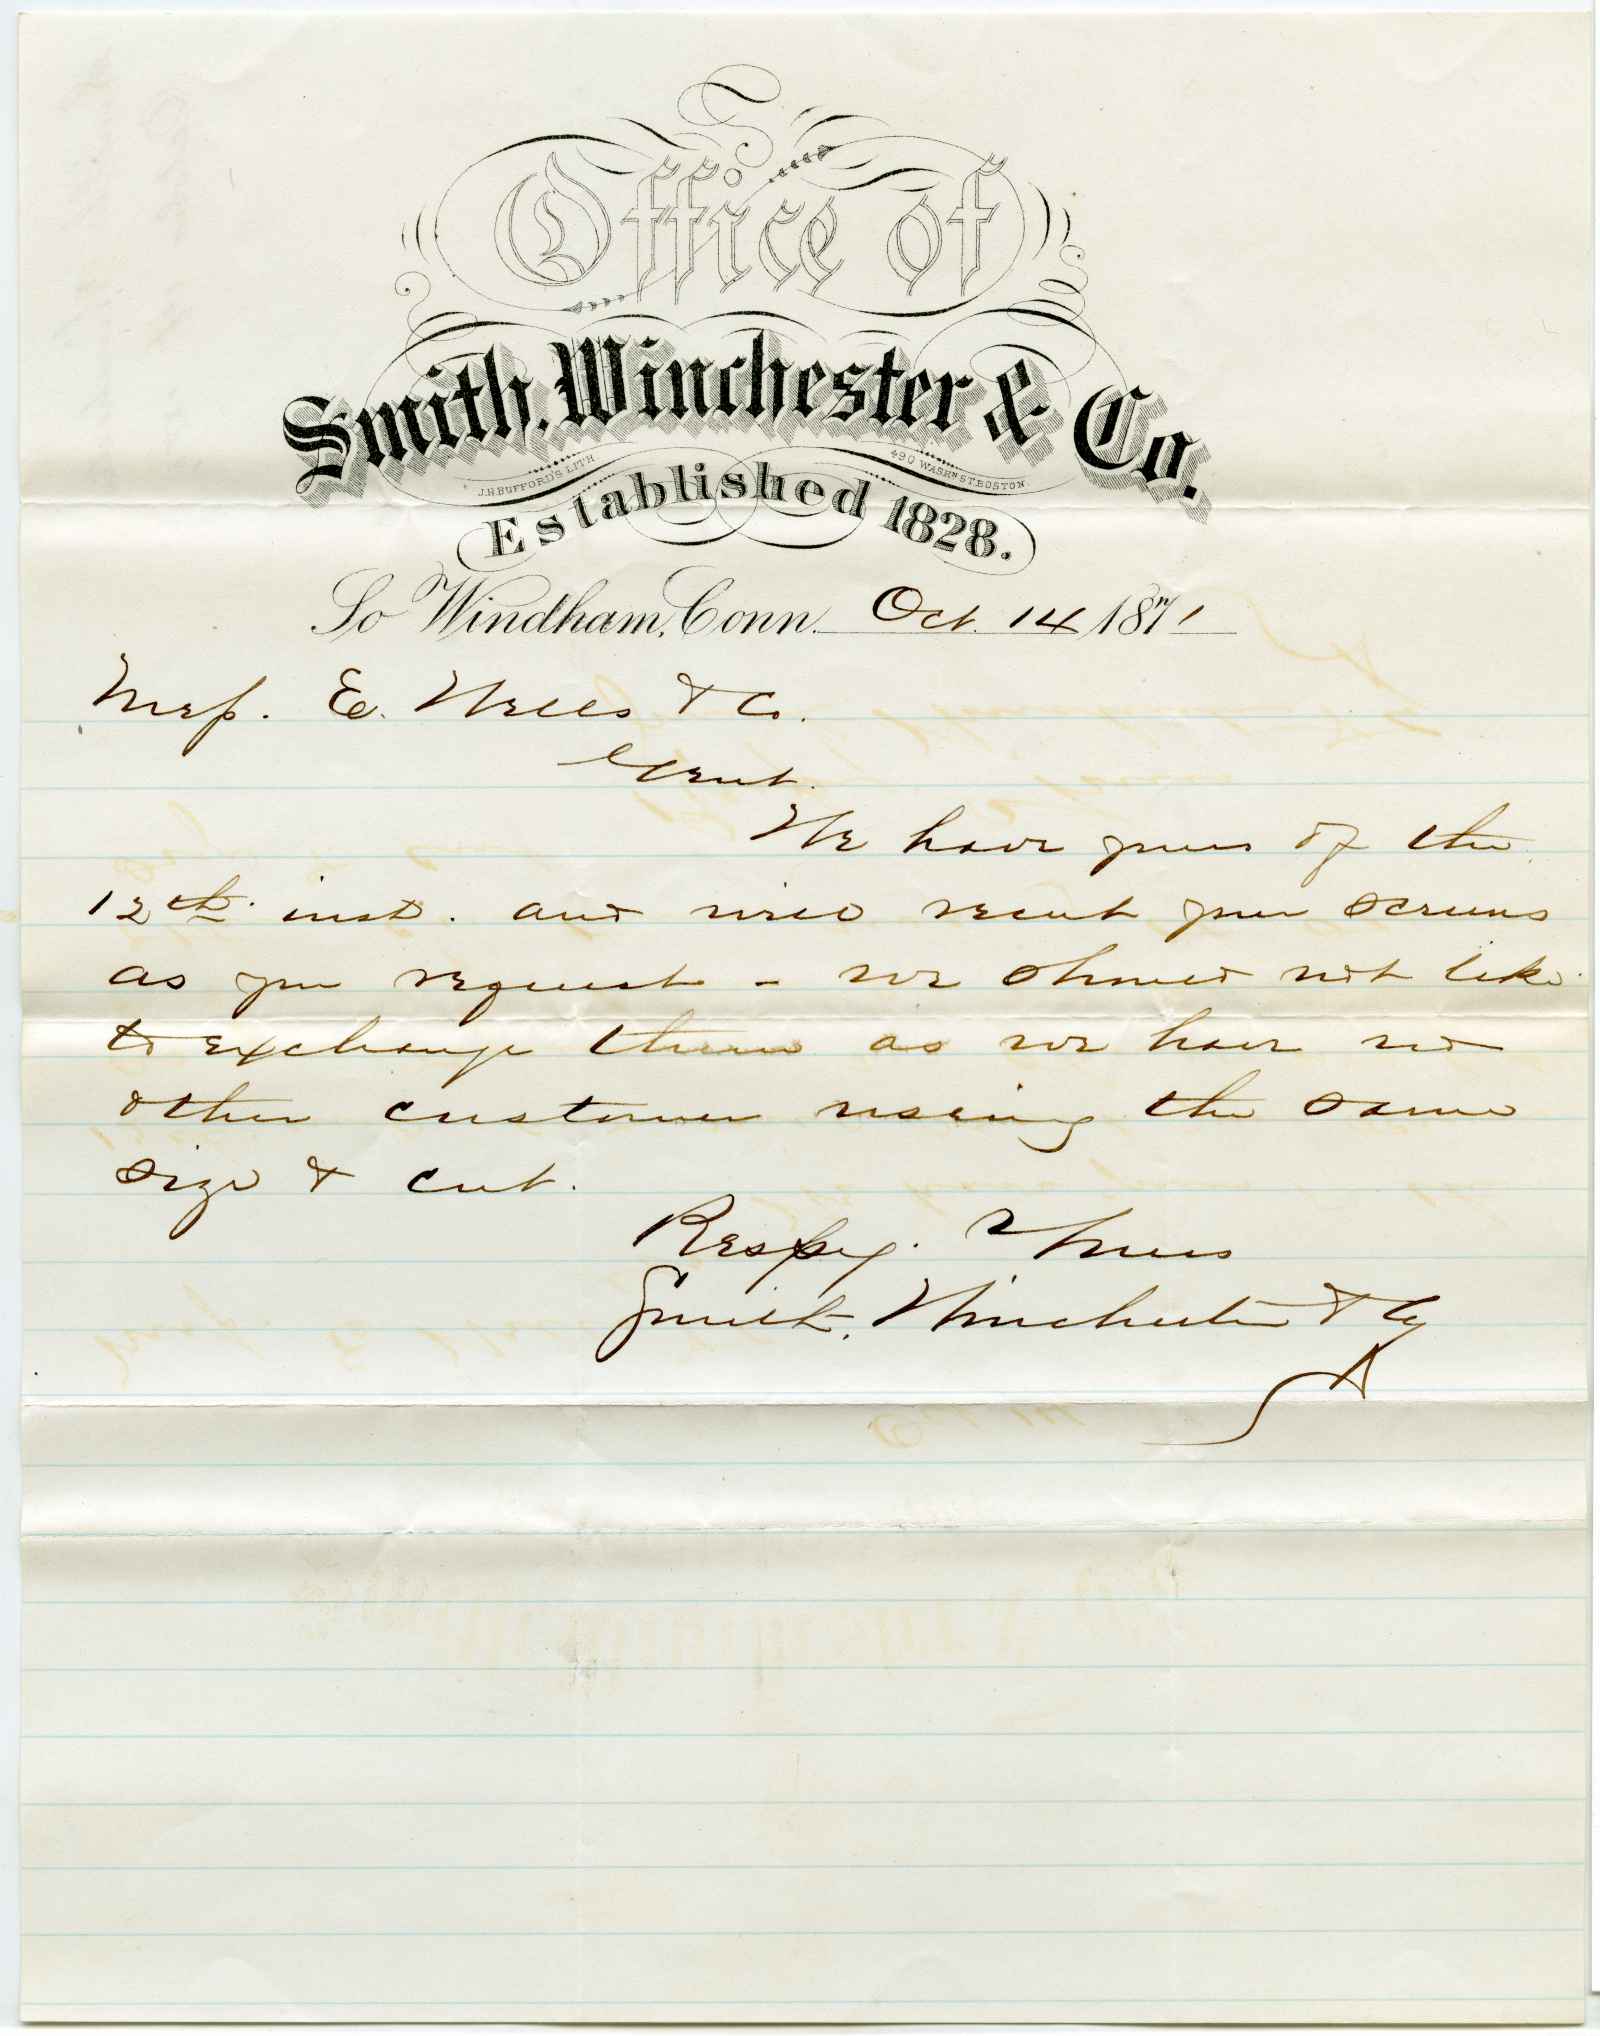 Office of
Smith, Winchester & Co.
J.H. BUFFORD'S LITH 490 WASHN ST. BOSTON.
Established 1828.
So Windham, Conn. Oct. 14 1871
Mess. E. Wells & Co.
Gent.
We have yours of the
12th inst. and will recut your screens
as you request - we should not like
to exchange them as we have no
other customer using the same
size & cut.
Respy. Yours
Smith, Winchester & Co